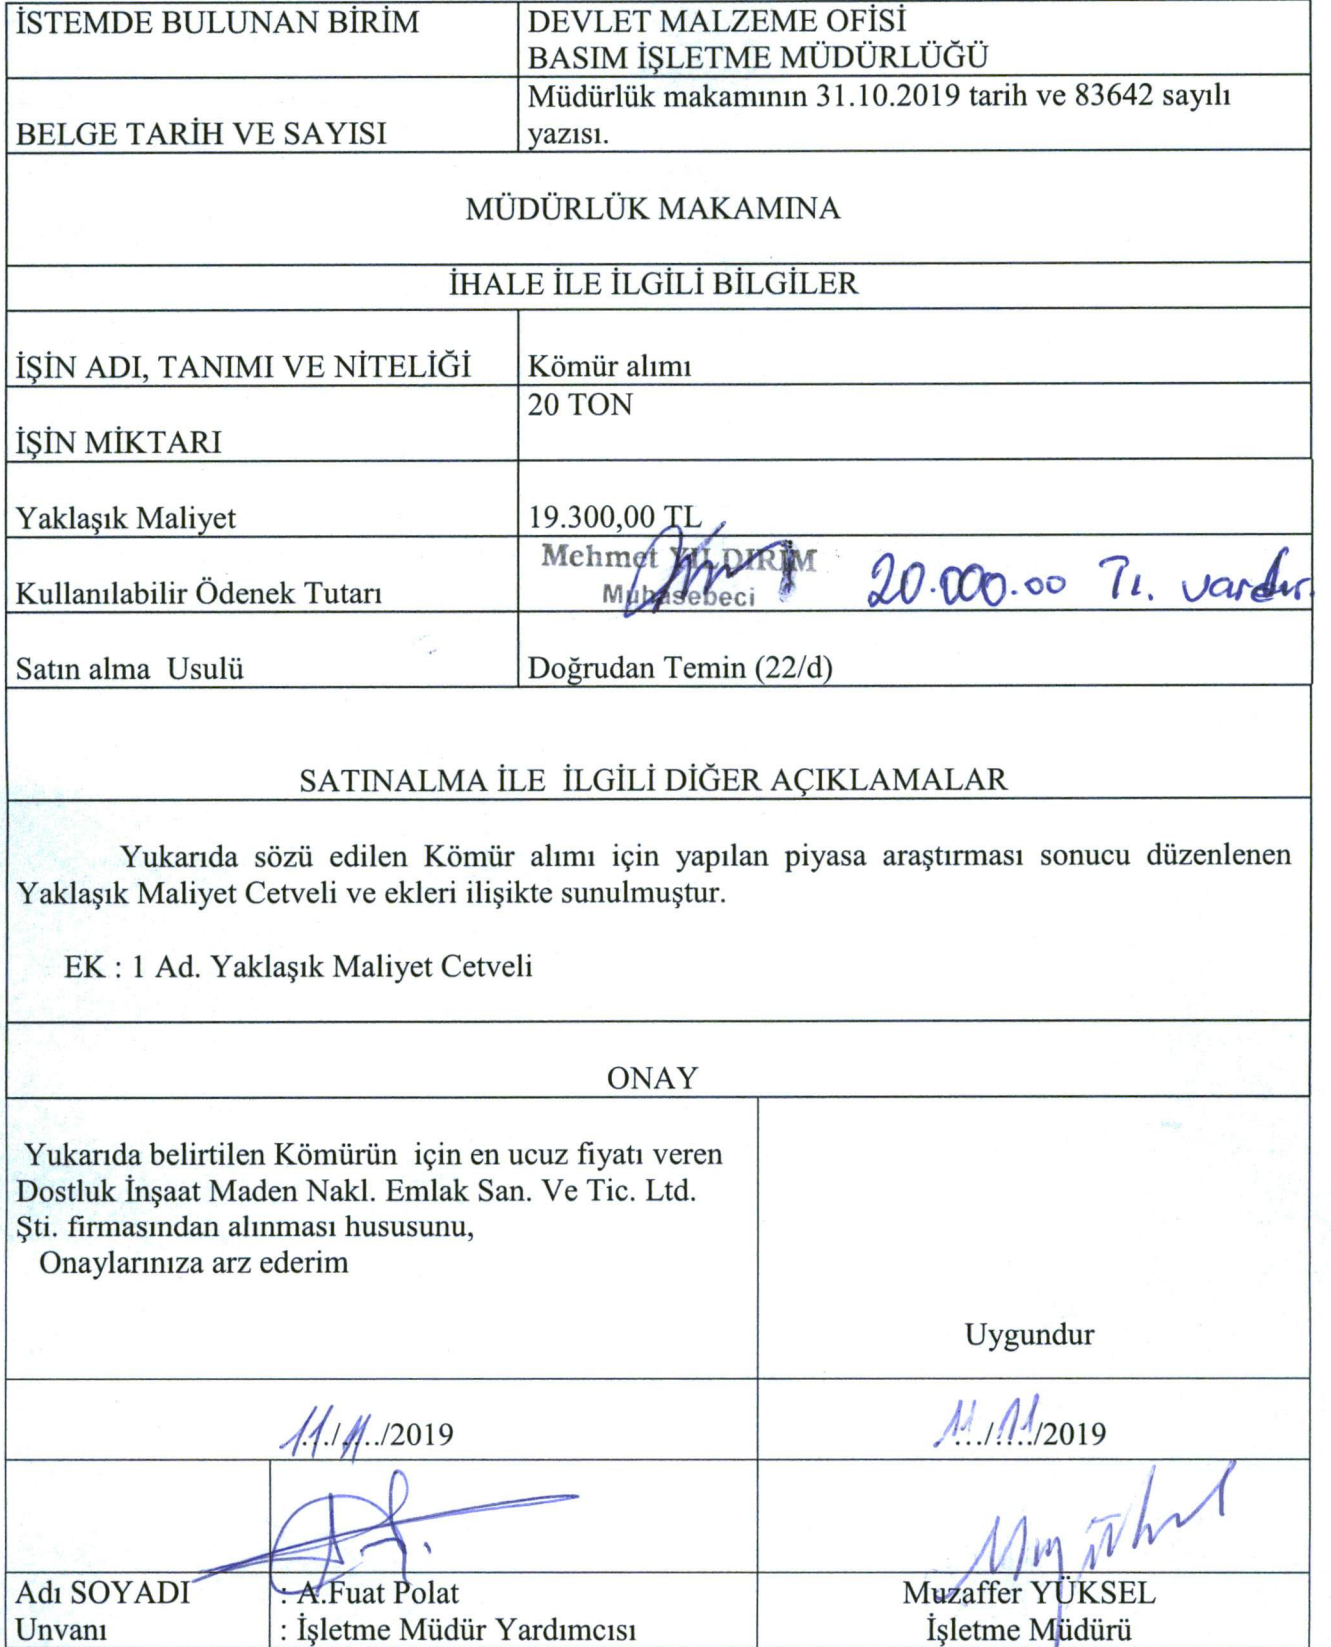 İSTEMDE BULUNAN BİRİM
DEVLET MALZEME OFİSİ
BASIM İŞLETME MÜDÜRLÜĞÜ
BELGE TARİH VE SAYISI
Müdürlük makamının 31.10.2019 tarih ve 83642 sayılı
yazısı.
MÜDÜRLÜK MAKAMINA
İHALE İLE İLGİLİ BİLGİLER
İŞİN ADI, TANIMI VE NİTELİĞİ
Kömür alımı
İŞİN MİKTARI
20 TON
Yaklaşık Maliyet
19.300,00 TL
Kullanılabilir Ödenek Tutarı
Mehmet YILDIRIM
Muhasebeci
20.000.00 TL. vardır.
Satın alma Usulü
Doğrudan Temin (22/d)
SATINALMA İLE İLGİLİ DİĞER AÇIKLAMALAR
Yukarıda sözü edilen Kömür alımı için yapılan piyasa araştırması sonucu düzenlenen
Yaklaşık Maliyet Cetveli ve ekleri ilişikte sunulmuştur.
EK : 1 Ad. Yaklaşık Maliyet Cetveli
ONAY
Yukarıda belirtilen Kömürün için en ucuz fiyatı veren
Dostluk İnşaat Maden Nakl. Emlak San. Ve Tic. Ltd.
Şti. firmasından alınması hususunu,
Onaylarınıza arz ederim
Uygundur
11/11/2019
11/11/2019
Adı SOYADI : A.Fuat Polat
Unvanı : İşletme Müdür Yardımcısı
Muzaffer YÜKSEL
İşletme Müdürü